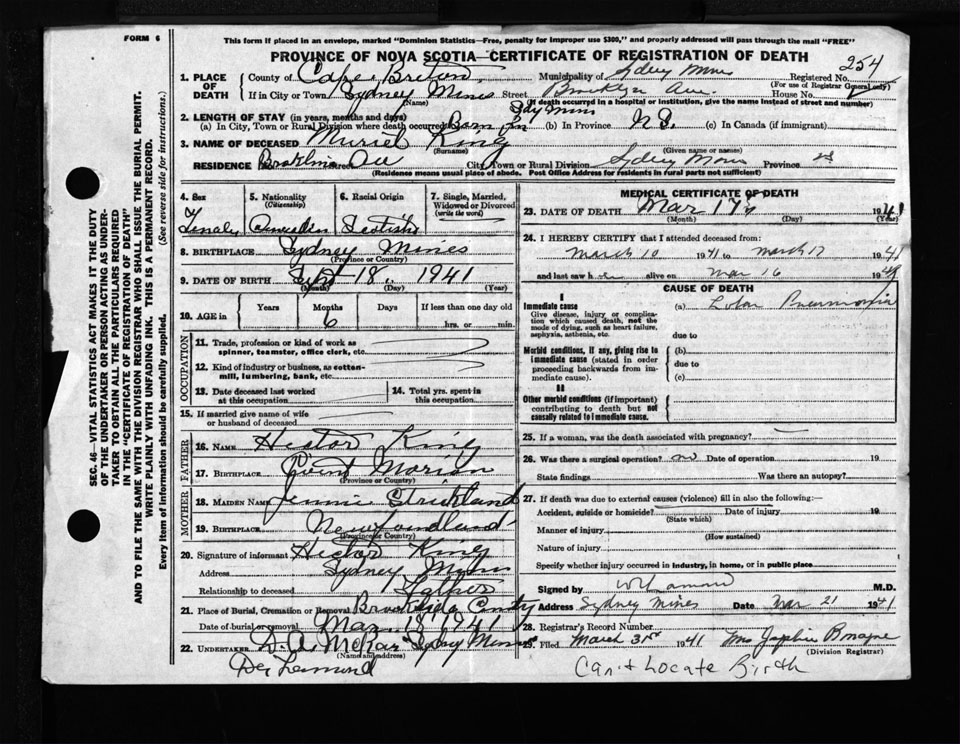 FORM 6
This form if placed in an envelope, marked "Dominion Statistics—Free, penalty for improper use $300," and properly addressed will pass through the mail "FREE"
PROVINCE OF NOVA SCOTIA—CERTIFICATE OF REGISTRATION OF DEATH
254
1. PLACE OF DEATH
County of Cape Breton Municipality of Sydney Mines Registered No.
(For use of Registrar General only)
If in City or Town Sydney Mines Street Brooklyn Ave. House No.
(Name) (If death occurred in a hospital or institution, give the name instead of street and number)
2. LENGTH OF STAY (in years, months and days) Sdy Mines
(a) In City, Town or Rural Division where death occurred Born in (b) In Province N.S. (c) In Canada (if immigrant)
3. NAME OF DECEASED Muriel King
(Surname) (Given name or names)
RESIDENCE Ave City, Town or Rural Division Sydney Mines Province
(Residence means usual place of abode. Post Office Address for residents in rural parts not sufficient)
4. Sex 5. Nationality (Citizenship) 6. Racial Origin 7. Single, Married, Widowed or Divorced (write the word)
Female Canadian Scotish
8. BIRTHPLACE Sydney Mines
(Province or Country)
9. DATE OF BIRTH Sept 18. 1941
(Month) (Day) (Year)
10. AGE in Years Months If less than one day old
6 hrs. or min.
OCCUPATION
11. Trade, profession or kind of work as spinner, teamster, office clerk, etc.
12. Kind of industry or business, as cotton-mill, lumbering, bank, etc.
13. Date deceased last worked at this occupation 14. Total yrs. spent in this occupation
15. If married give name of wife or husband of deceased
FATHER
16. NAME Hector King
17. BIRTHPLACE Morien
(Province or Country)
MOTHER
18. MAIDEN NAME Jennie Strickland
19. BIRTHPLACE Newfoundland
(Province or Country)
20. Signature of informant Hector King
Address Sydney Mines
Relationship to deceased Father
21. Place of Burial, Cremation or Removal Brookside
Date of burial or removal Mar 18 1941
22. UNDERTAKER D. A. Sydney Mines
(Name and address)
MEDICAL CERTIFICATE OF DEATH
23. DATE OF DEATH Mar 17 1941
(Month) (Day) (Year)
24. I HEREBY CERTIFY that I attended deceased from:
March 10 1941 to March 17 1941
and last saw h er alive on Mar 16 1941
CAUSE OF DEATH
I
Immediate cause (a) Lobar Pneumonia
Give disease, injury or complication which caused death, not the mode of dying, such as heart failure, asphyxia, asthenia, etc.
due to
Morbid conditions, if any, giving rise to immediate cause (stated in order proceeding backwards from immediate cause).
(b)
due to
(c)
II
Other morbid conditions (if important) contributing to death but not causally related to immediate cause.
25. If a woman, was the death associated with pregnancy?
26. Was there a surgical operation? no Date of operation 19
State findings Was there an autopsy?
27. If death was due to external causes (violence) fill in also the following:—
Accident, suicide or homicide? Date of injury 19
(State which)
Manner of injury
(How sustained)
Nature of injury
Specify whether injury occurred in industry, in home, or in public place
Signed by M.D.
Address Sydney Mines Date Mar 21 1941
28. Registrar's Record Number
29. Filed March 31st 1941
(Division Registrar)
Can't Locate Birth
SEC. 46—VITAL STATISTICS ACT MAKES IT THE DUTY
OF THE UNDERTAKER OR PERSON ACTING AS UNDER-
TAKER TO OBTAIN ALL THE PARTICULARS REQUIRED
IN THE "CERTIFICATE OF REGISTRATION OF DEATH"
AND TO FILE THE SAME WITH THE DIVISION REGISTRAR WHO SHALL ISSUE THE BURIAL PERMIT.
WRITE PLAINLY WITH UNFADING INK. THIS IS A PERMANENT RECORD.
Every item of information should be carefully supplied. (See reverse side for instructions.)